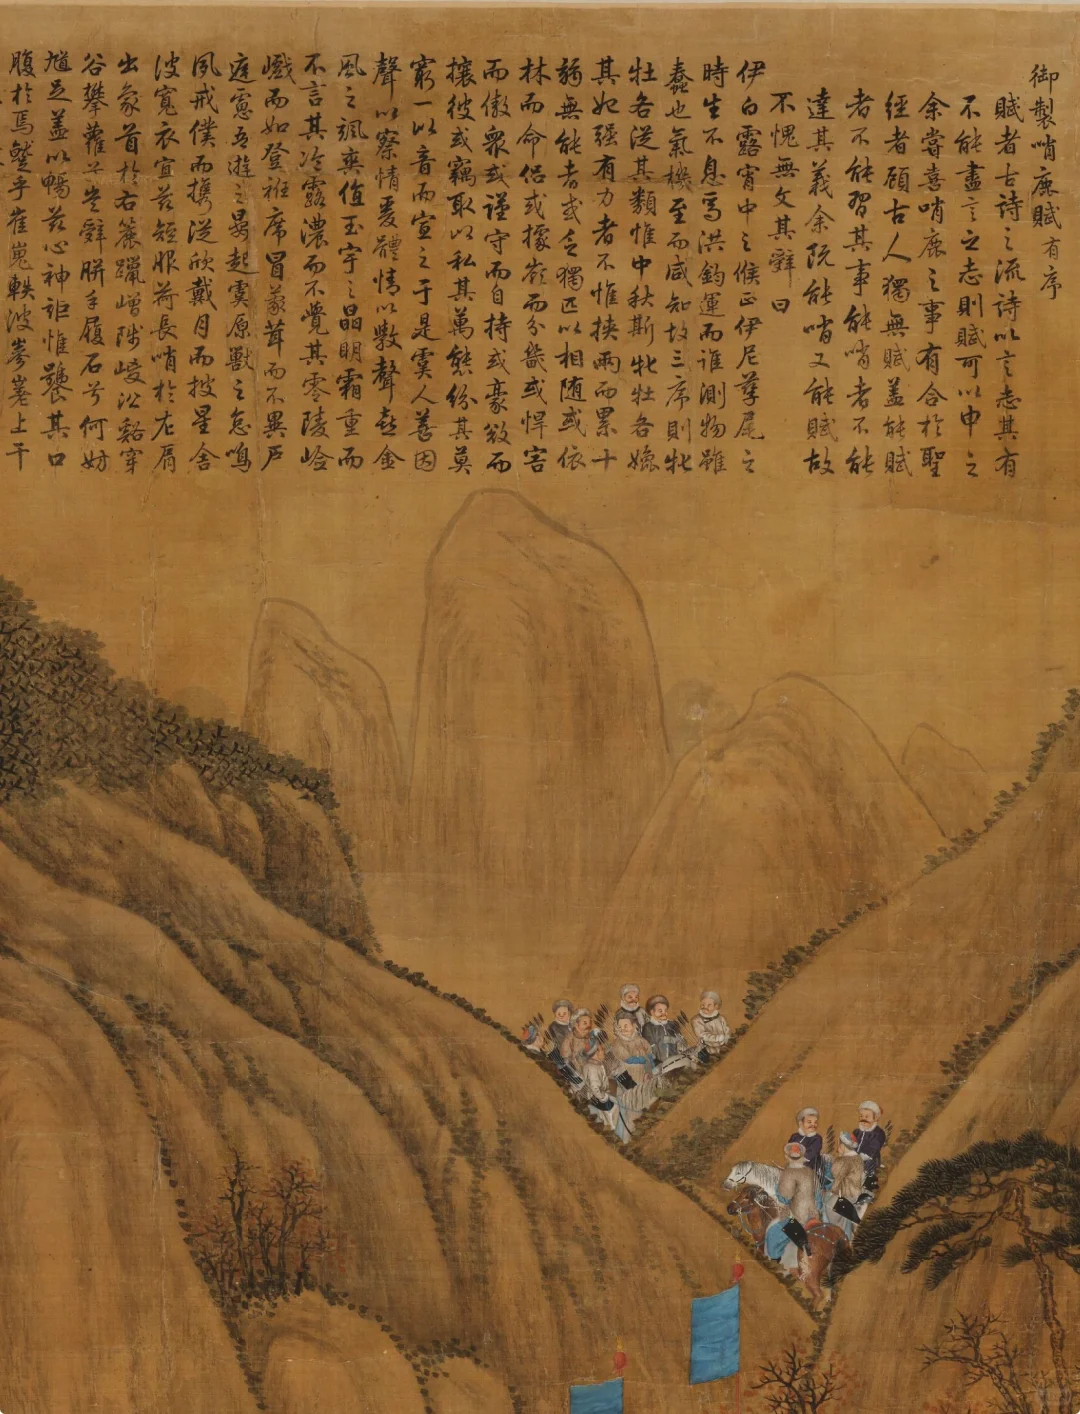 御製哨鹿賦有序
賦者古詩之流詩以言志其有
不能盡言之志則賦可以申之
余嘗喜哨鹿之事有合於聖
經者顧古人獨無賦盖能賦
者不能習其事能哨者不能
達其義余既能哨又能賦故
不愧無文其辭曰
伊白露宵中之候正伊尼孳尾之
時生不息焉洪鈞運而誰測物雖
蠢也氣機至而咸知故三序則牝
牡各從其類惟中秋斯牝牡各
其妃强有力者不惟挾兩而累十
弱無能者或乏獨匹以相随或依
林而命侣或據嶺而分或悍害
而傲衆或謹守而自持或豪而
攘彼或竊取以私其萬態紛其莫
窮一以音而宣之于是虞人善因
聲以察情爰體情以斆聲金
風之颯爽值玉宇之晶明霜重而
不言其冷露濃而不覺其零陵
巘而如登袵席冒蒙茸而不異戶
庭慮吾遊之晏起虞原獸之怠鳴
夙戒僕而攜從欣戴月而披星舍
彼寬衣宜茲短服荷長哨於左肩
出象首於右躐嶒谿穿
谷攀蘿胼手履石兮何妨
足盖以暢茲心神詎惟饜其口
腹於焉乎崔嵬軼波上干